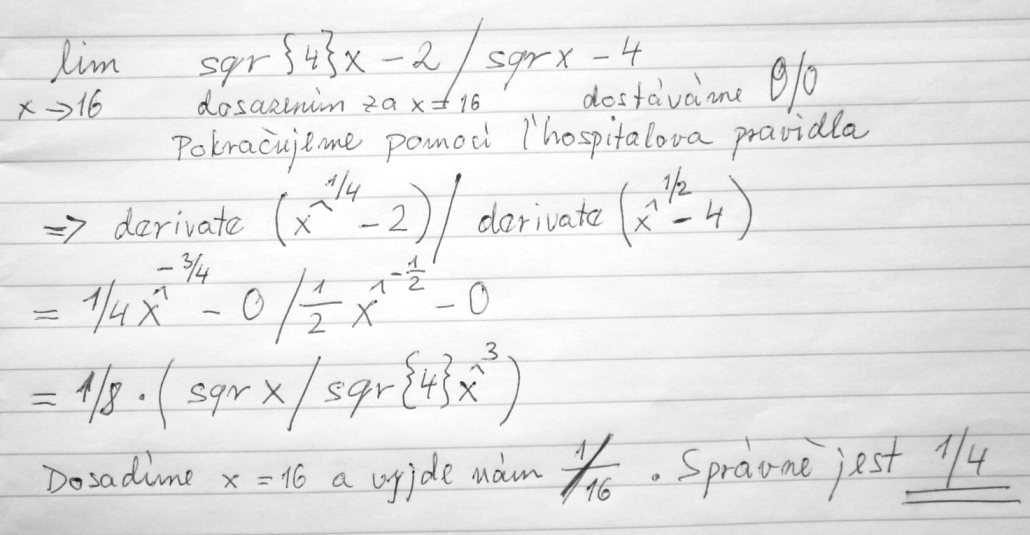 lim sqr{4}x - 2 / sqrx - 4
x→16 dosazením za x = 16 dostáváme 0/0
Pokračujeme pomocí l'hospitalova pravidla
=> derivate (x^1/4 - 2) / derivate (x^1/2 - 4)
= 1/4x^-3/4 - 0 / 1/2 x^-1/2 - 0
= 1/8 · (sqrx / sqr{4}x^3)
Dosadíme x = 16 a vyjde nám 1/16. Správně jest 1/4